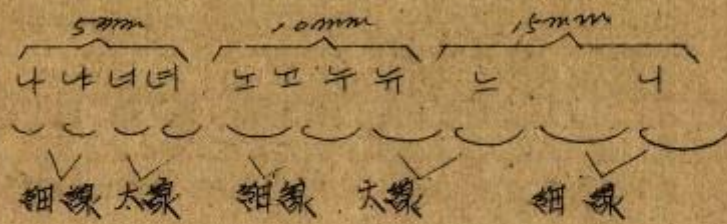 5mm 10mm 15mm
나 냐 너 녀 노 뇨 누 뉴 느 니
細線 太線 細線 太線 細線